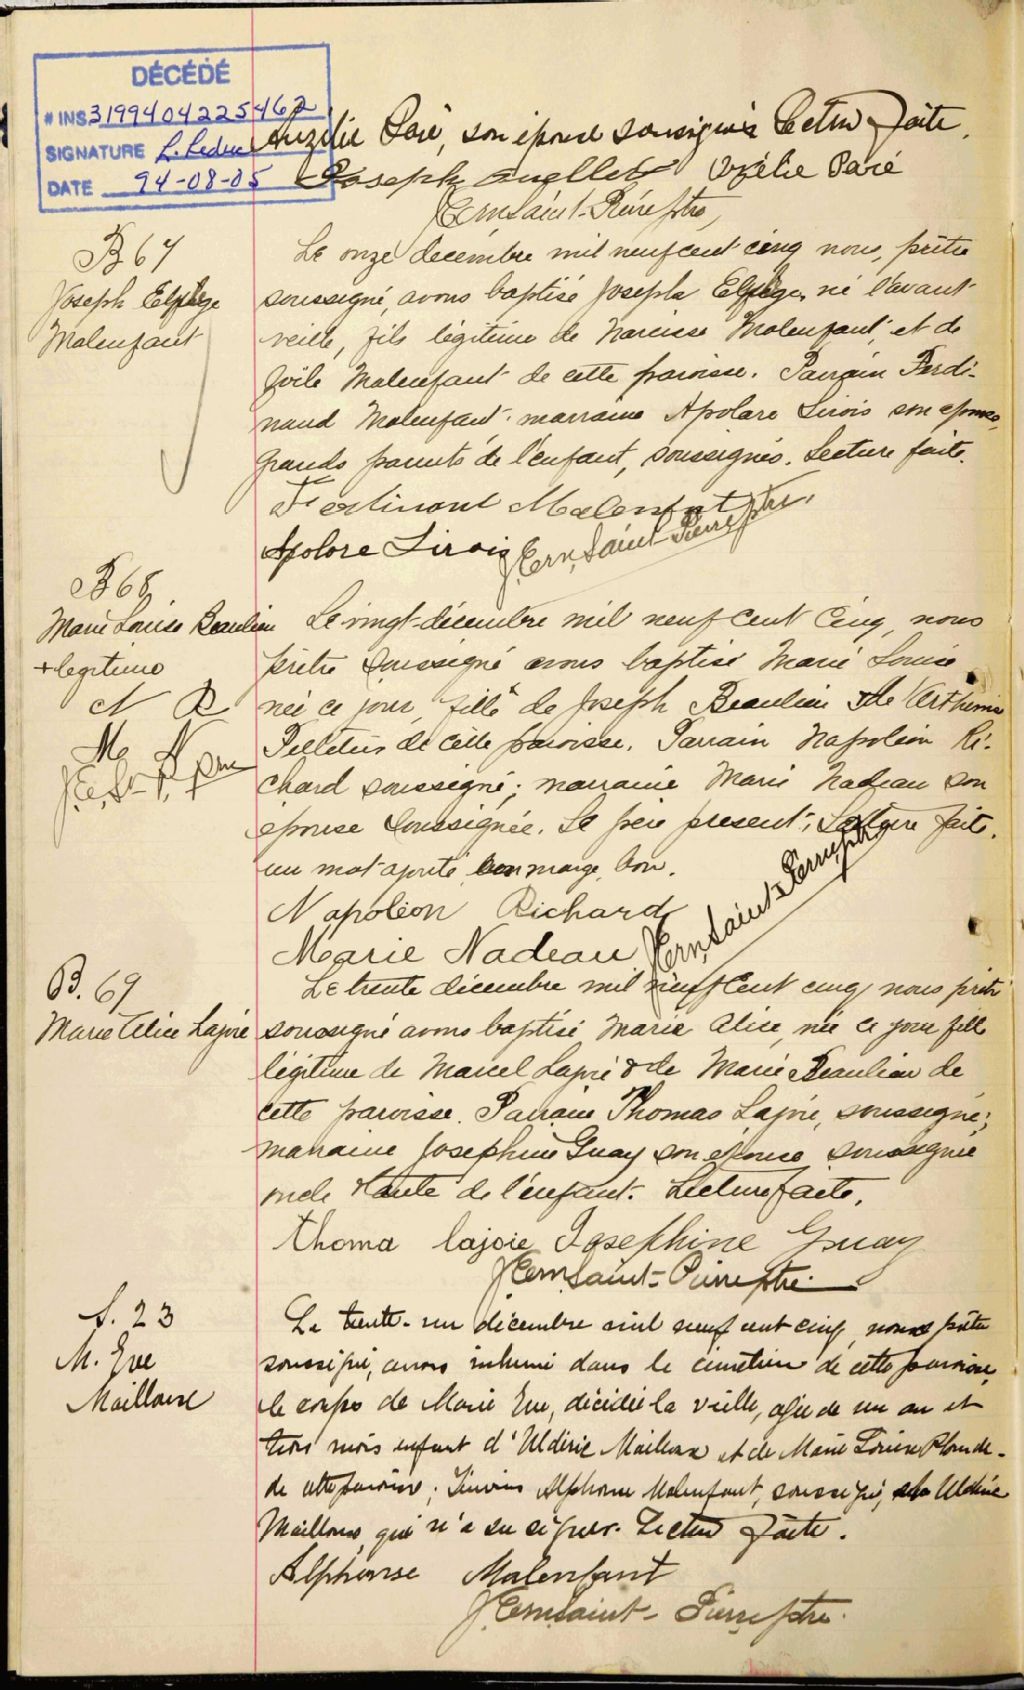 DÉCÉDÉ
# INS 3199404225462
SIGNATURE L. Leduc
DATE 94-08-05
Auzélie Paré, son épouse soussignés Lecture faite.
Joseph Ouellet Ozélie Paré
J. Ern. Saint-Pierre ptre,
B 67
Joseph Elphège
Malenfant
Le onze decembre mil neuf cent cinq nous, prêtre
soussigné, avons baptisé Joseph Elphège, né l'avant
veille, fils légitime de Narcisse Malenfant, et de
Malenfant de cette paroisse. Parrain Ferdi-
nand Malenfant marraine Apolare Sirois son épouse,
grands parents de l'enfant, soussignés. Lecture faite.
Ferdinant Malenfant
Apolare Sirois J. Ern. Saint-Pierre ptre.
B 68
Marie Louise Beaulieu
+ legitime
N R
M N
J. E. St-P. ptre
Le vingt-décembre mil neuf cent cinq, nous
prêtre soussigné avons baptisé Marie Louise
née ce jour, fille + de Joseph Beaulieu & de
Pelletier de cette paroisse. Parrain Napoléon Ri-
chard soussigné; marraine Marie Nadeau son
épouse soussignée. Le père présent. Lecture faite.
un mot ajouté en marge, bon.
Napoléon Richard
Marie Nadeau J. Ern. Saint-Pierre ptre
B. 69
Marie Alice Lajoie
Le trente décembre mil neuf cent cinq nous prêtre
soussigné avons baptisé Marie Alice, née ce jour fille
légitime de Marcel Lajoie & de Marie Beaulieu de
cette paroisse. Parrain Thomas Lajoie, soussigné;
marraine Josephine Guay son épouse soussignée
oncle & tante de l'enfant. Lecture faite.
thoma lajoie Josephine Guay
J. Ern. Saint-Pierre ptre.
S. 23
M. Eve
Mailloux
Le trente-un décembre mil neuf cent cinq, nous prêtre
soussigné, avons inhumé dans le cimetière de cette paroisse,
le corps de Marie Eve, décédée la veille, agée de un an et
trois mois enfant d'Uldéric Mailloux et de Marie Louise Plourde-
de cette paroisse; Témoins Alphonse Malenfant, soussigné, Uldéric
Mailloux, qui n'a su signer. Lecture faite.
Alphonse Malenfant
J. Ern. Saint-Pierre ptre.